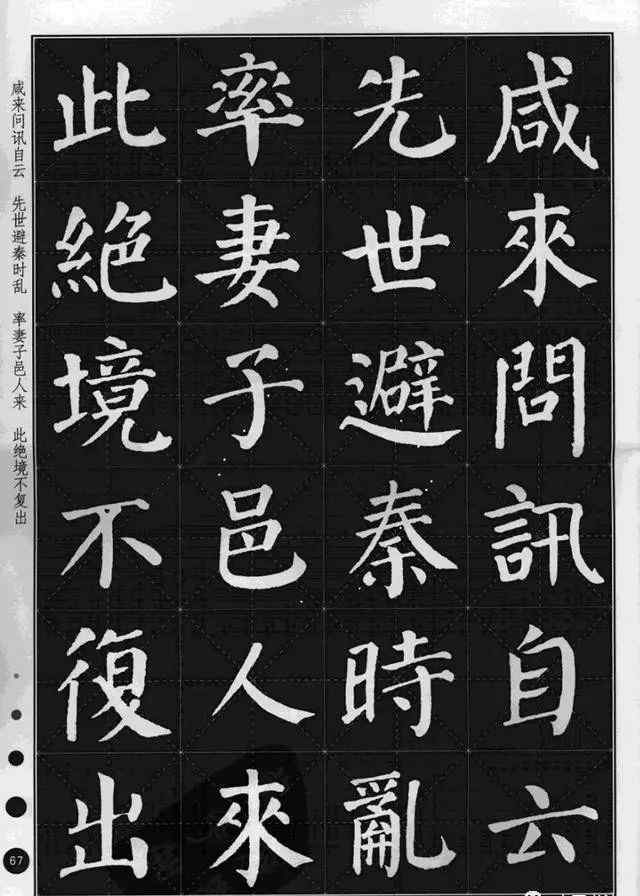 咸來問訊自云
先世避秦時亂
率妻子邑人來
此絕境不復出
咸来问讯自云 先世避秦时乱 率妻子邑人来 此绝境不复出
67